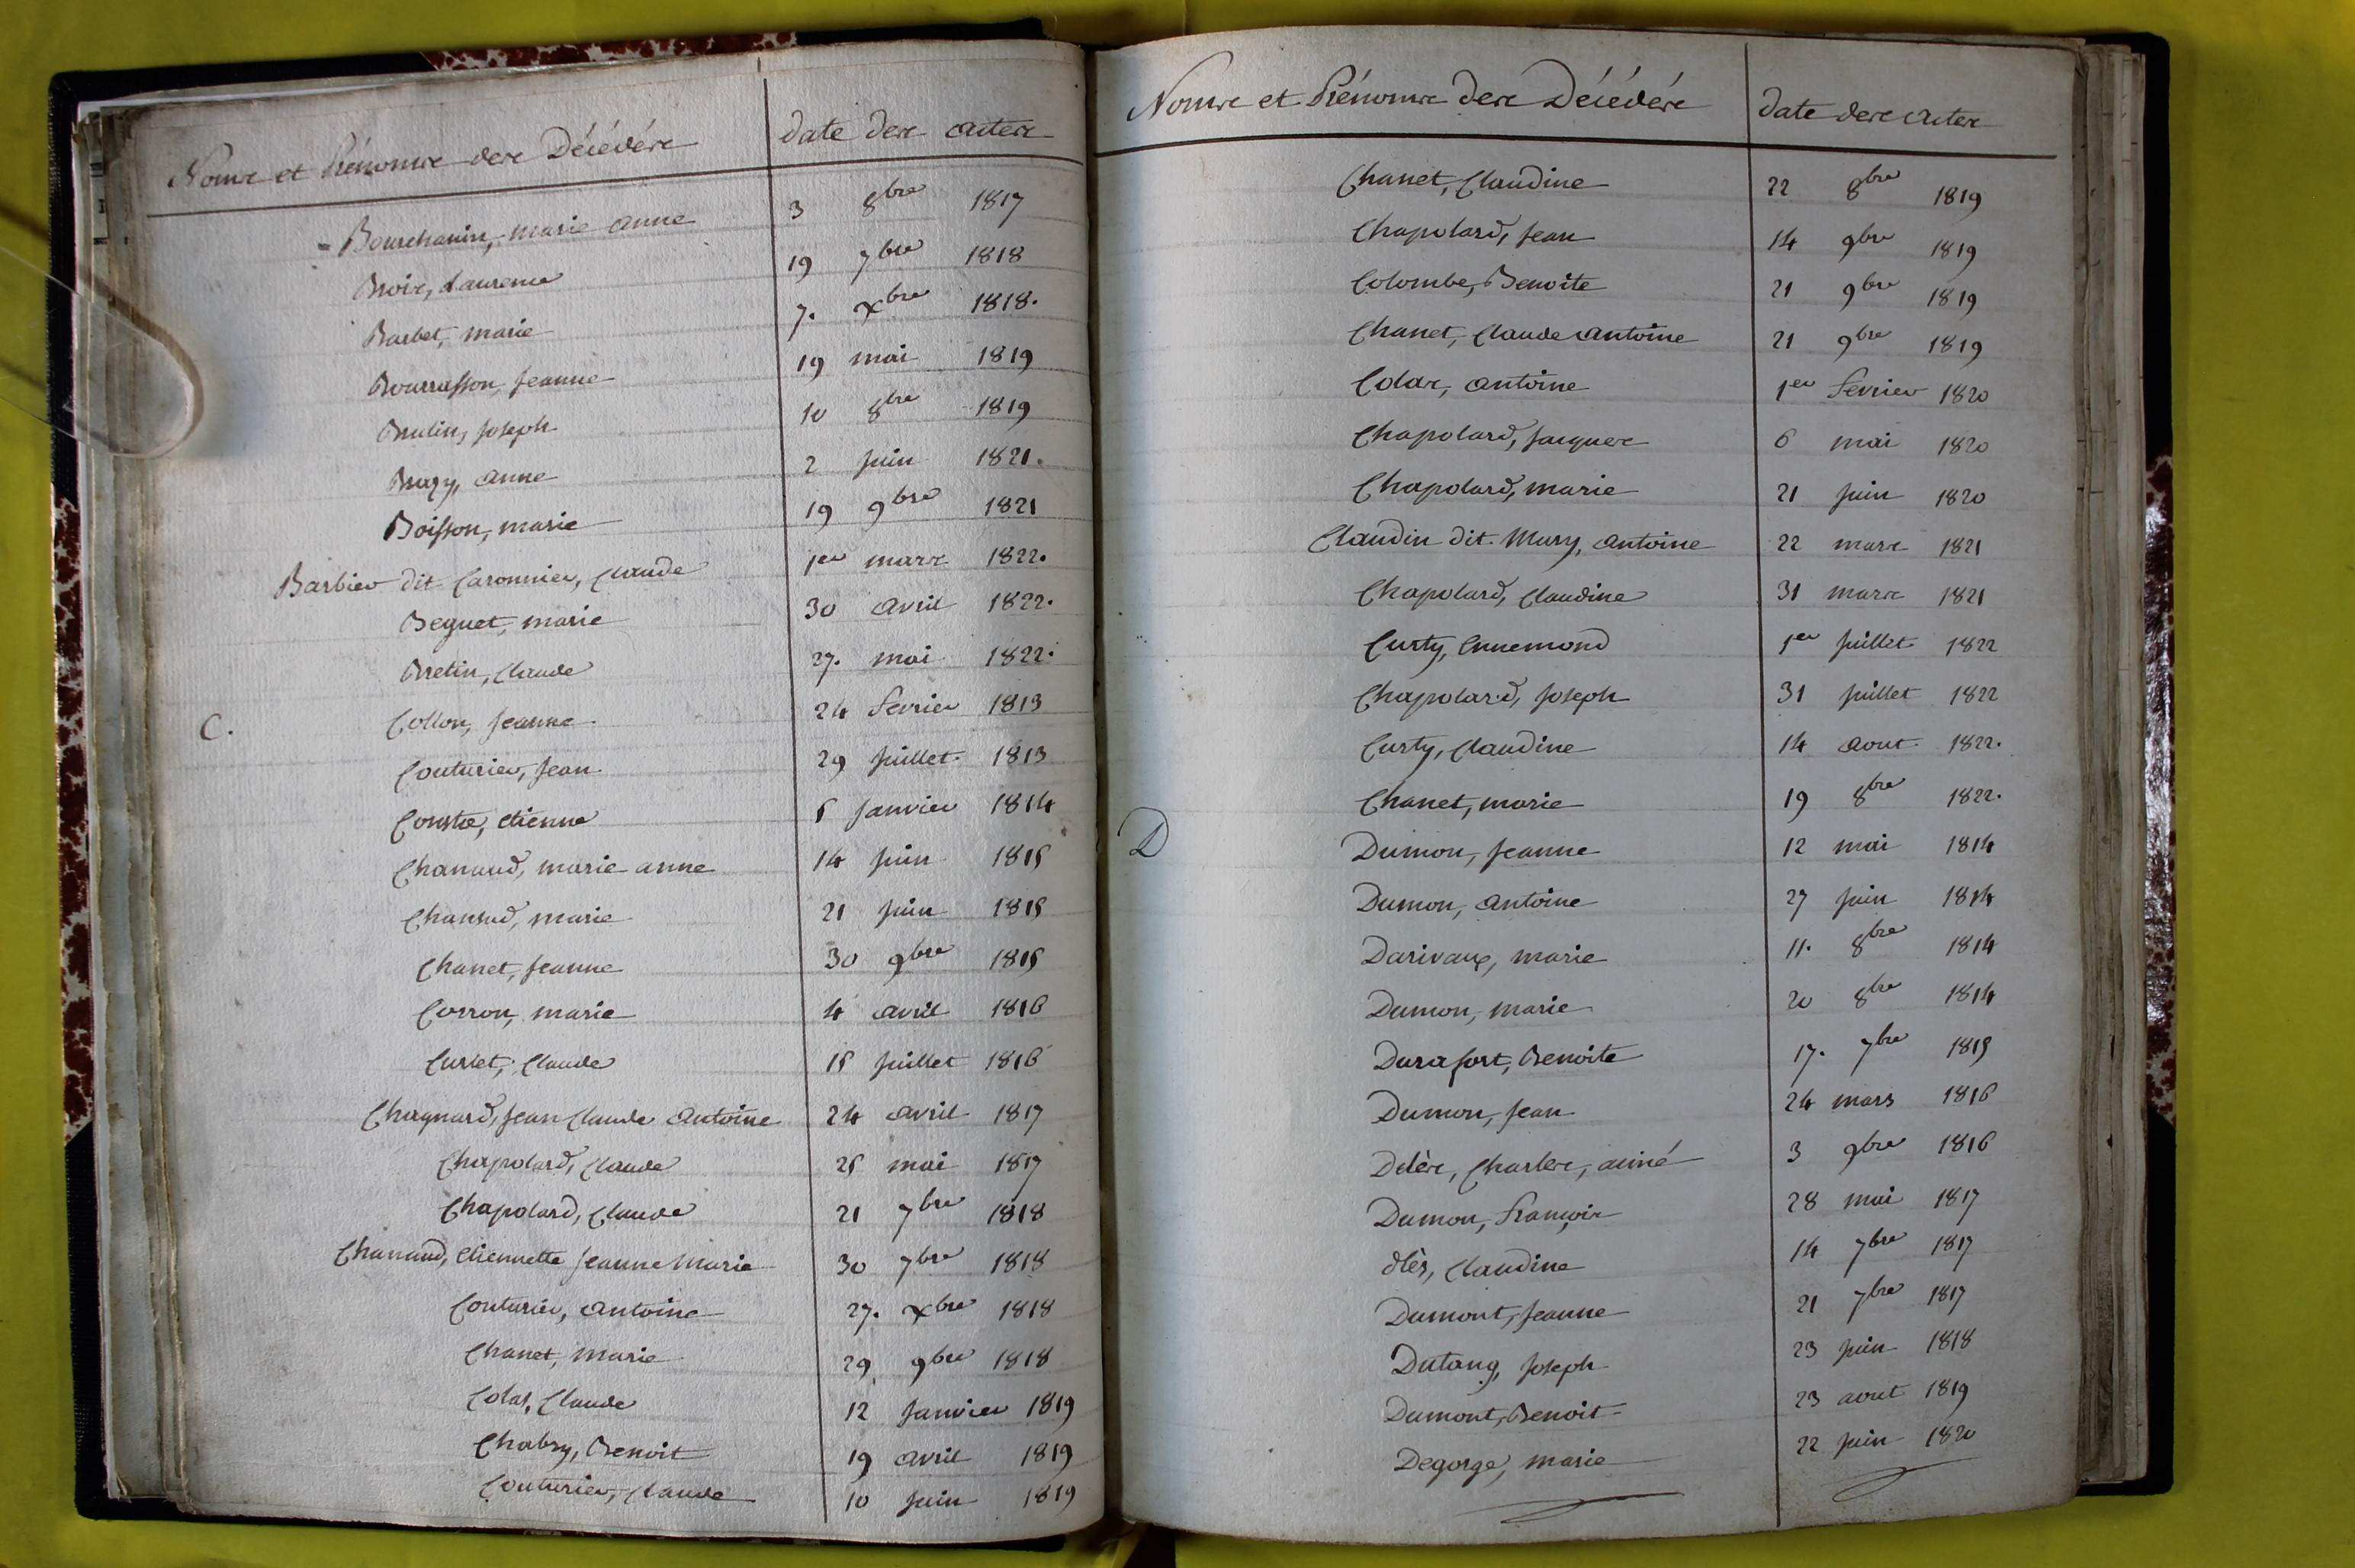 Noms et Prénoms des Décédés date des actes
Bourchanin, marie anne 3 8bre 1817
Broix, Laurence 19 7bre 1818
Barbet, marie 7. Xbre 1818.
Bourrasson, Jeanne 19 mai 1819
Brulin, Joseph 10 8bre 1819
anne 2 juin 1821.
Boisson, marie 19 9bre 1821
Barbier dit Caronnier, Claude 1er mars 1822.
Beguet, marie 30 avril 1822.
Bretin, Claude 27. mai 1822.
C. Collon, Jeanne 24 fevrier 1813
Couturier, Jean 29 Juillet 1813
etienne 5 Janvier 1814
Chanaud, marie anne 14 Juin 1815
marie 21 Juin 1815
Chanet, Jeanne 30 9bre 1815
Corron, marie 4 avril 1816
Curlet, Claude 15 Juillet 1816
Chagnard, Jean Claude Antoine 24 avril 1817
Chapolard, Claude 25 mai 1817
Chapolard, Claude 21 7bre 1818
Chanaud, Etiennette Jeanne Marie 30 7bre 1818
Couturier, Antoine 27. Xbre 1818
Chanet, Marie 29 9bre 1818
Colas, Claude 12 Janvier 1819
Chabry, Benoit 19 avril 1819
Couturier, Claude 10 Juin 1819
Noms et Prénoms des Décédés date des actes
Chanet, Claudine 22 8bre 1819
Chapolard, Jean 14 9bre 1819
Colombe, Benoite 21 9bre 1819
Chanet, Claude Antoine 21 9bre 1819
Colas, Antoine 1er fevrier 1820
Chapolard, Jacques 6 mai 1820
Chapolard, marie 21 Juin 1820
Claudin dit Mury, Antoine 22 mars 1821
Chapolard, Claudine 31 mars 1821
Curty, Ennemond 1er Juillet 1822
Chapolard, Joseph 31 Juillet 1822
Curty, Claudine 14 aout 1822.
Chanet, marie 19 8bre 1822.
D Dumon, Jeanne 12 mai 1814
Dumon, Antoine 27 Juin 1814
Darivaux, marie 11. 8bre 1814
Dumon, marie 20 8bre 1814
Durafort, Benoite 17. 7bre 1815
Dumon, Jean 24 mars 1816
Delès, Charles, aimé 3 9bre 1816
Dumon, François 28 mai 1817
dlès, Claudine 14 7bre 1817
Dumont, Jeanne 21 7bre 1817
Dutang, Joseph 23 Juin 1818
Dumont, Benoit 23 aout 1819
Degorge, marie 22 Juin 1820